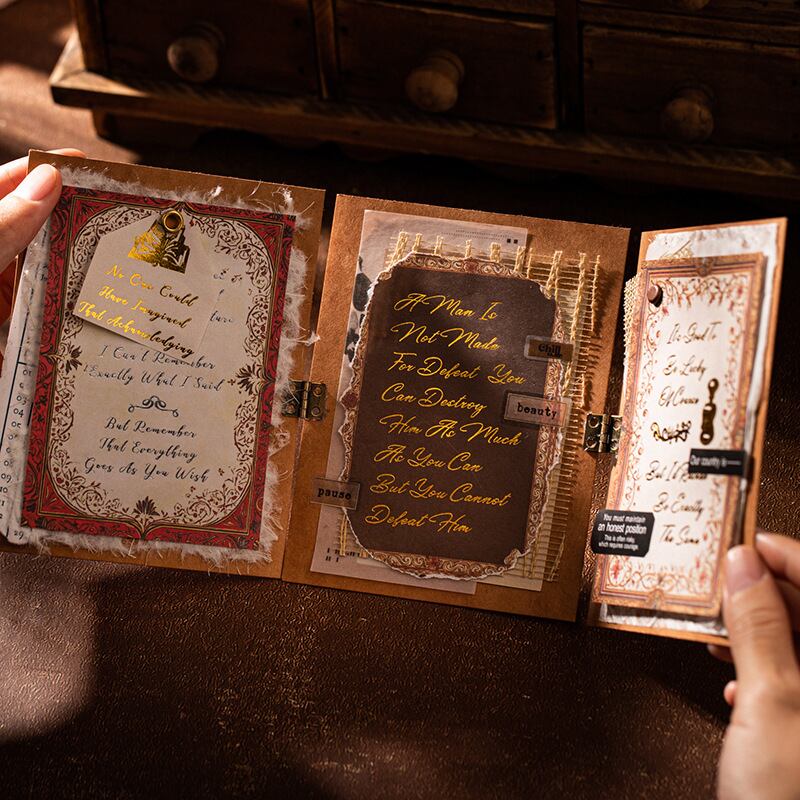 No One Could
Have Imagined
That Acknowledging
ture
I Can't Remember
Exactly What I Said
But Remember
That Everything
Goes As You Wish
A Man Is
Not Made
For Defeat You
Can Destroy
Him As Much
As You Can
But You Cannot
Defeat Him
chill
beauty
pause
It's Good To
Be Lucky
Of Course
But I
Be Exactly
The Same
Our country is
You must maintain
an honest position
This is often risky,
which requires courage.